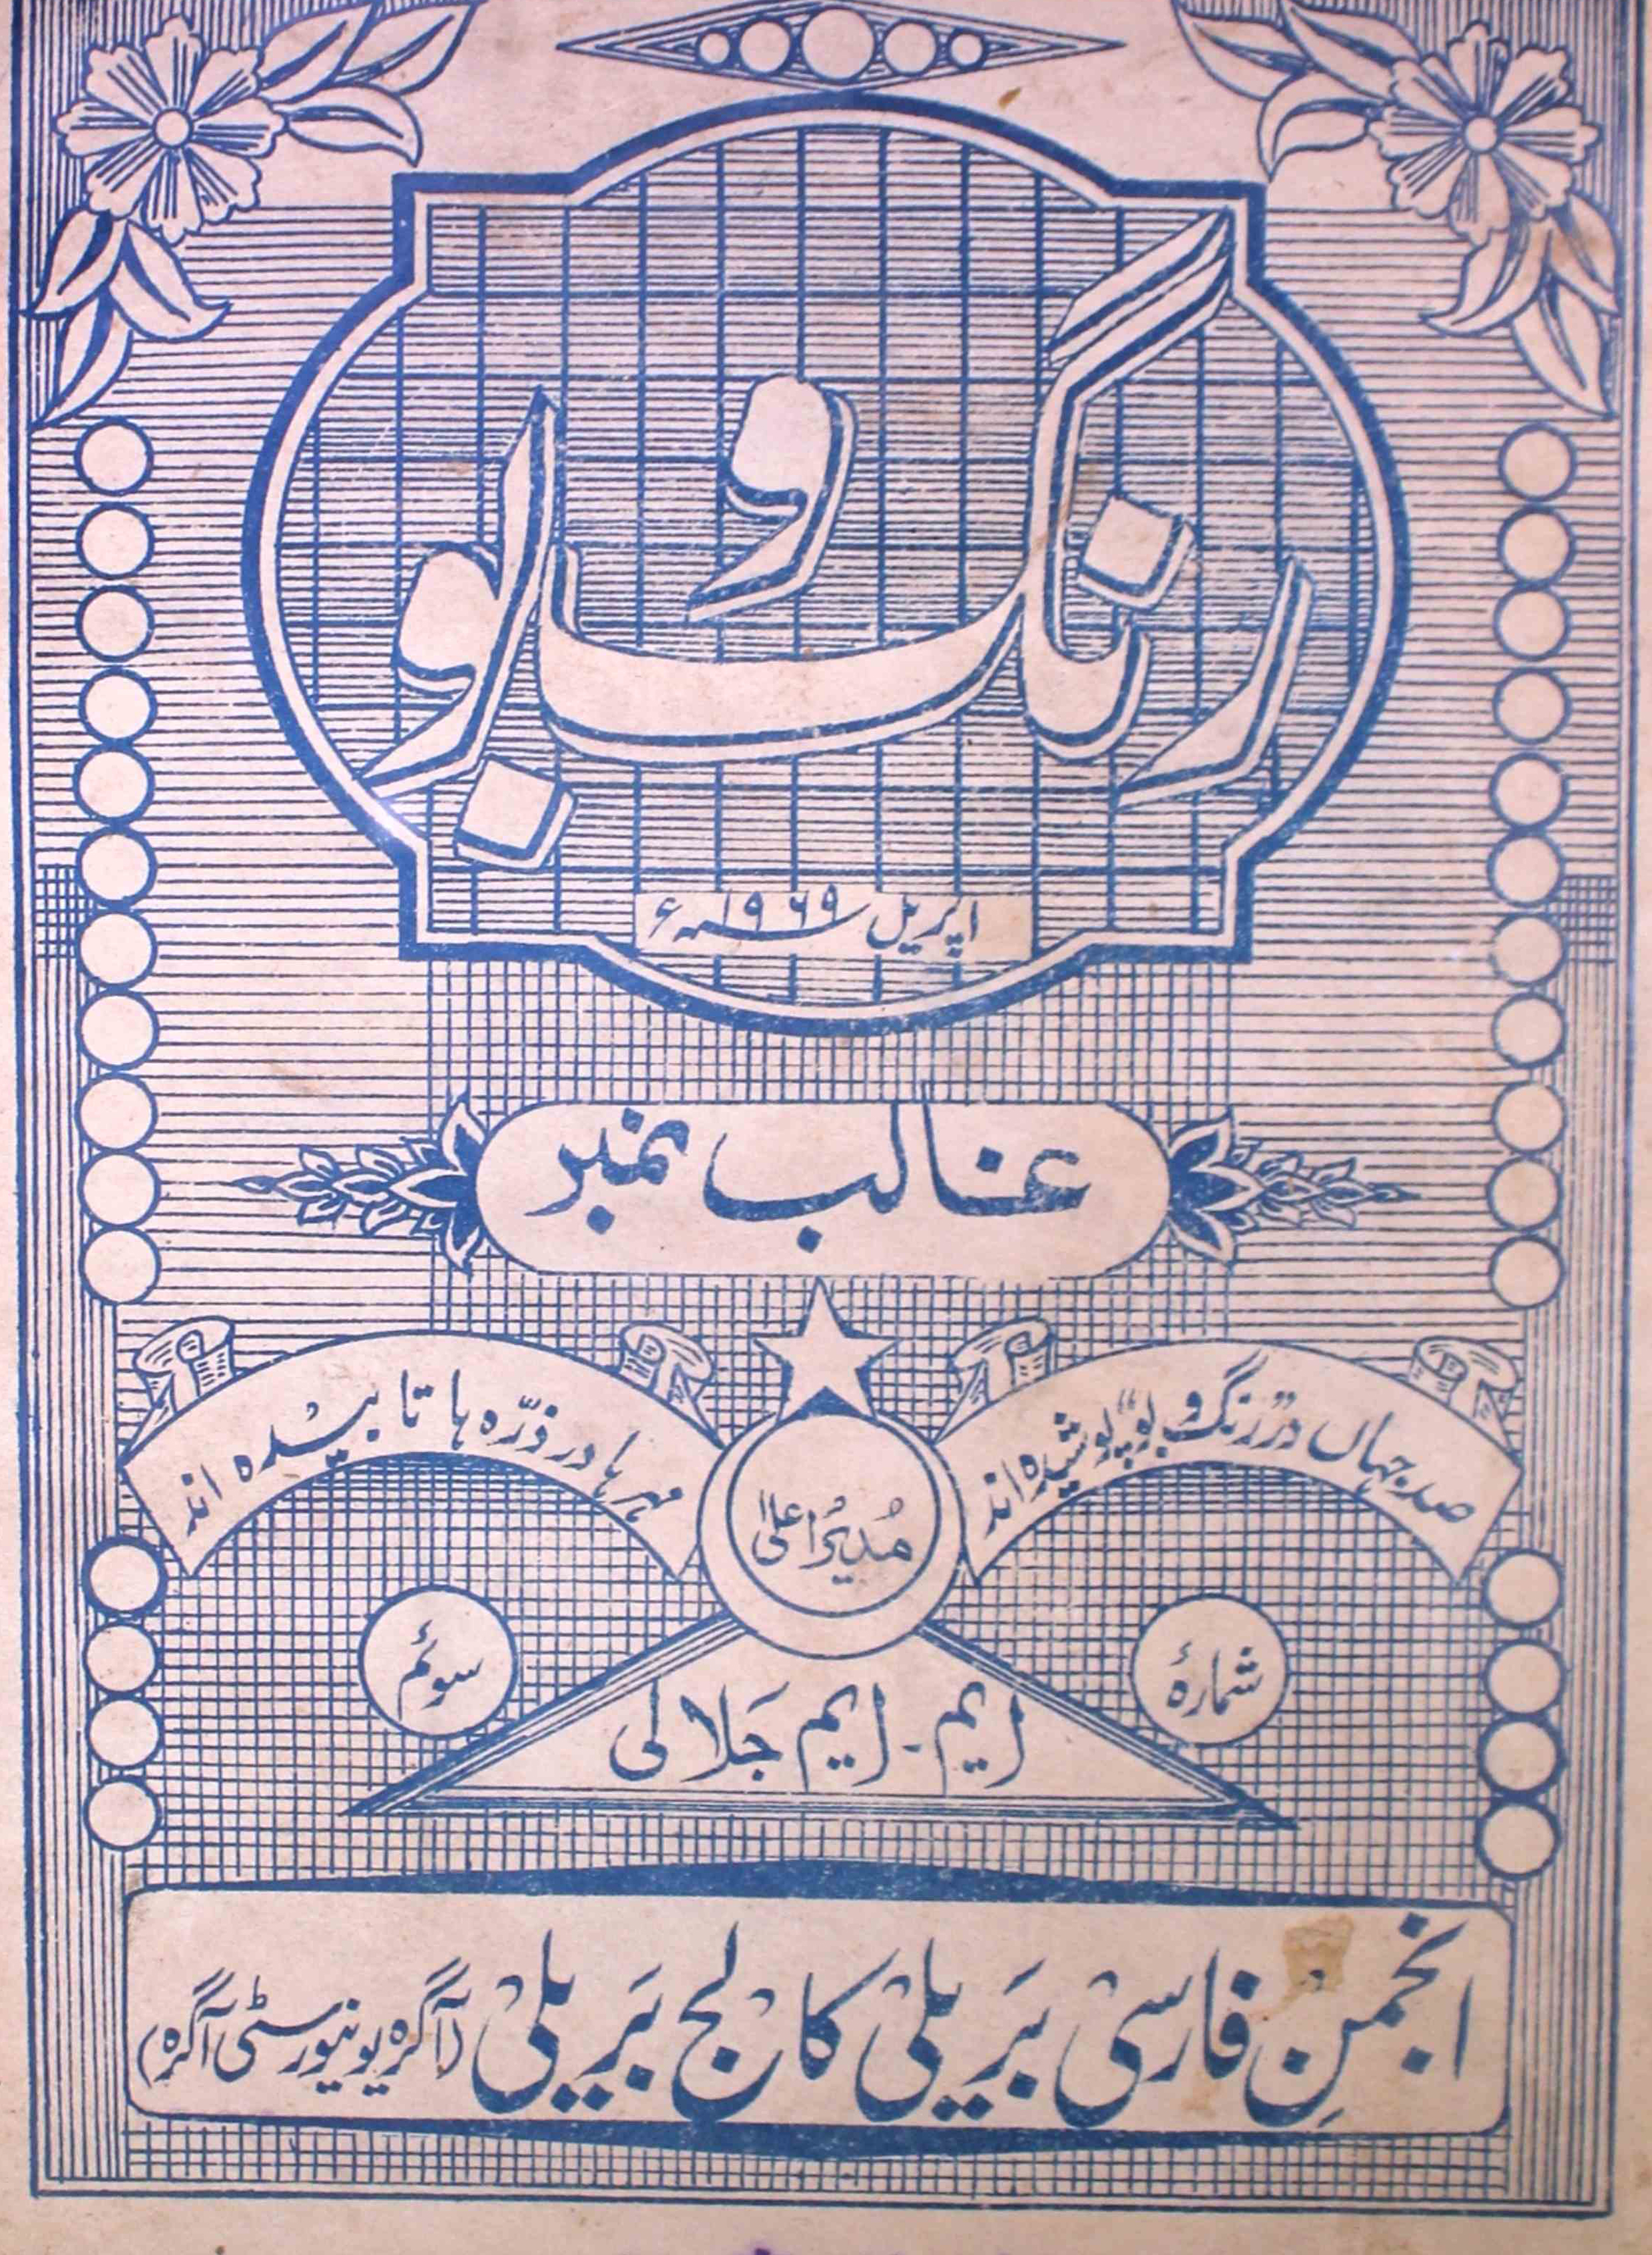 رنگ و بو
اپریل ۱۹۶۹ء
غالب نمبر
صد جہاں در "رنگ و بو" پوشیدہ اند
مہر ہا در ذرّہ ہا تابیدہ اند
مُدیرُ اعلیٰ
شمارۂ
سوئم
ایم۔ ایم جَلالی
انجمنِ فارسی بَریلی کالج بَریلی (آگرہ یونیورسٹی آگرہ)